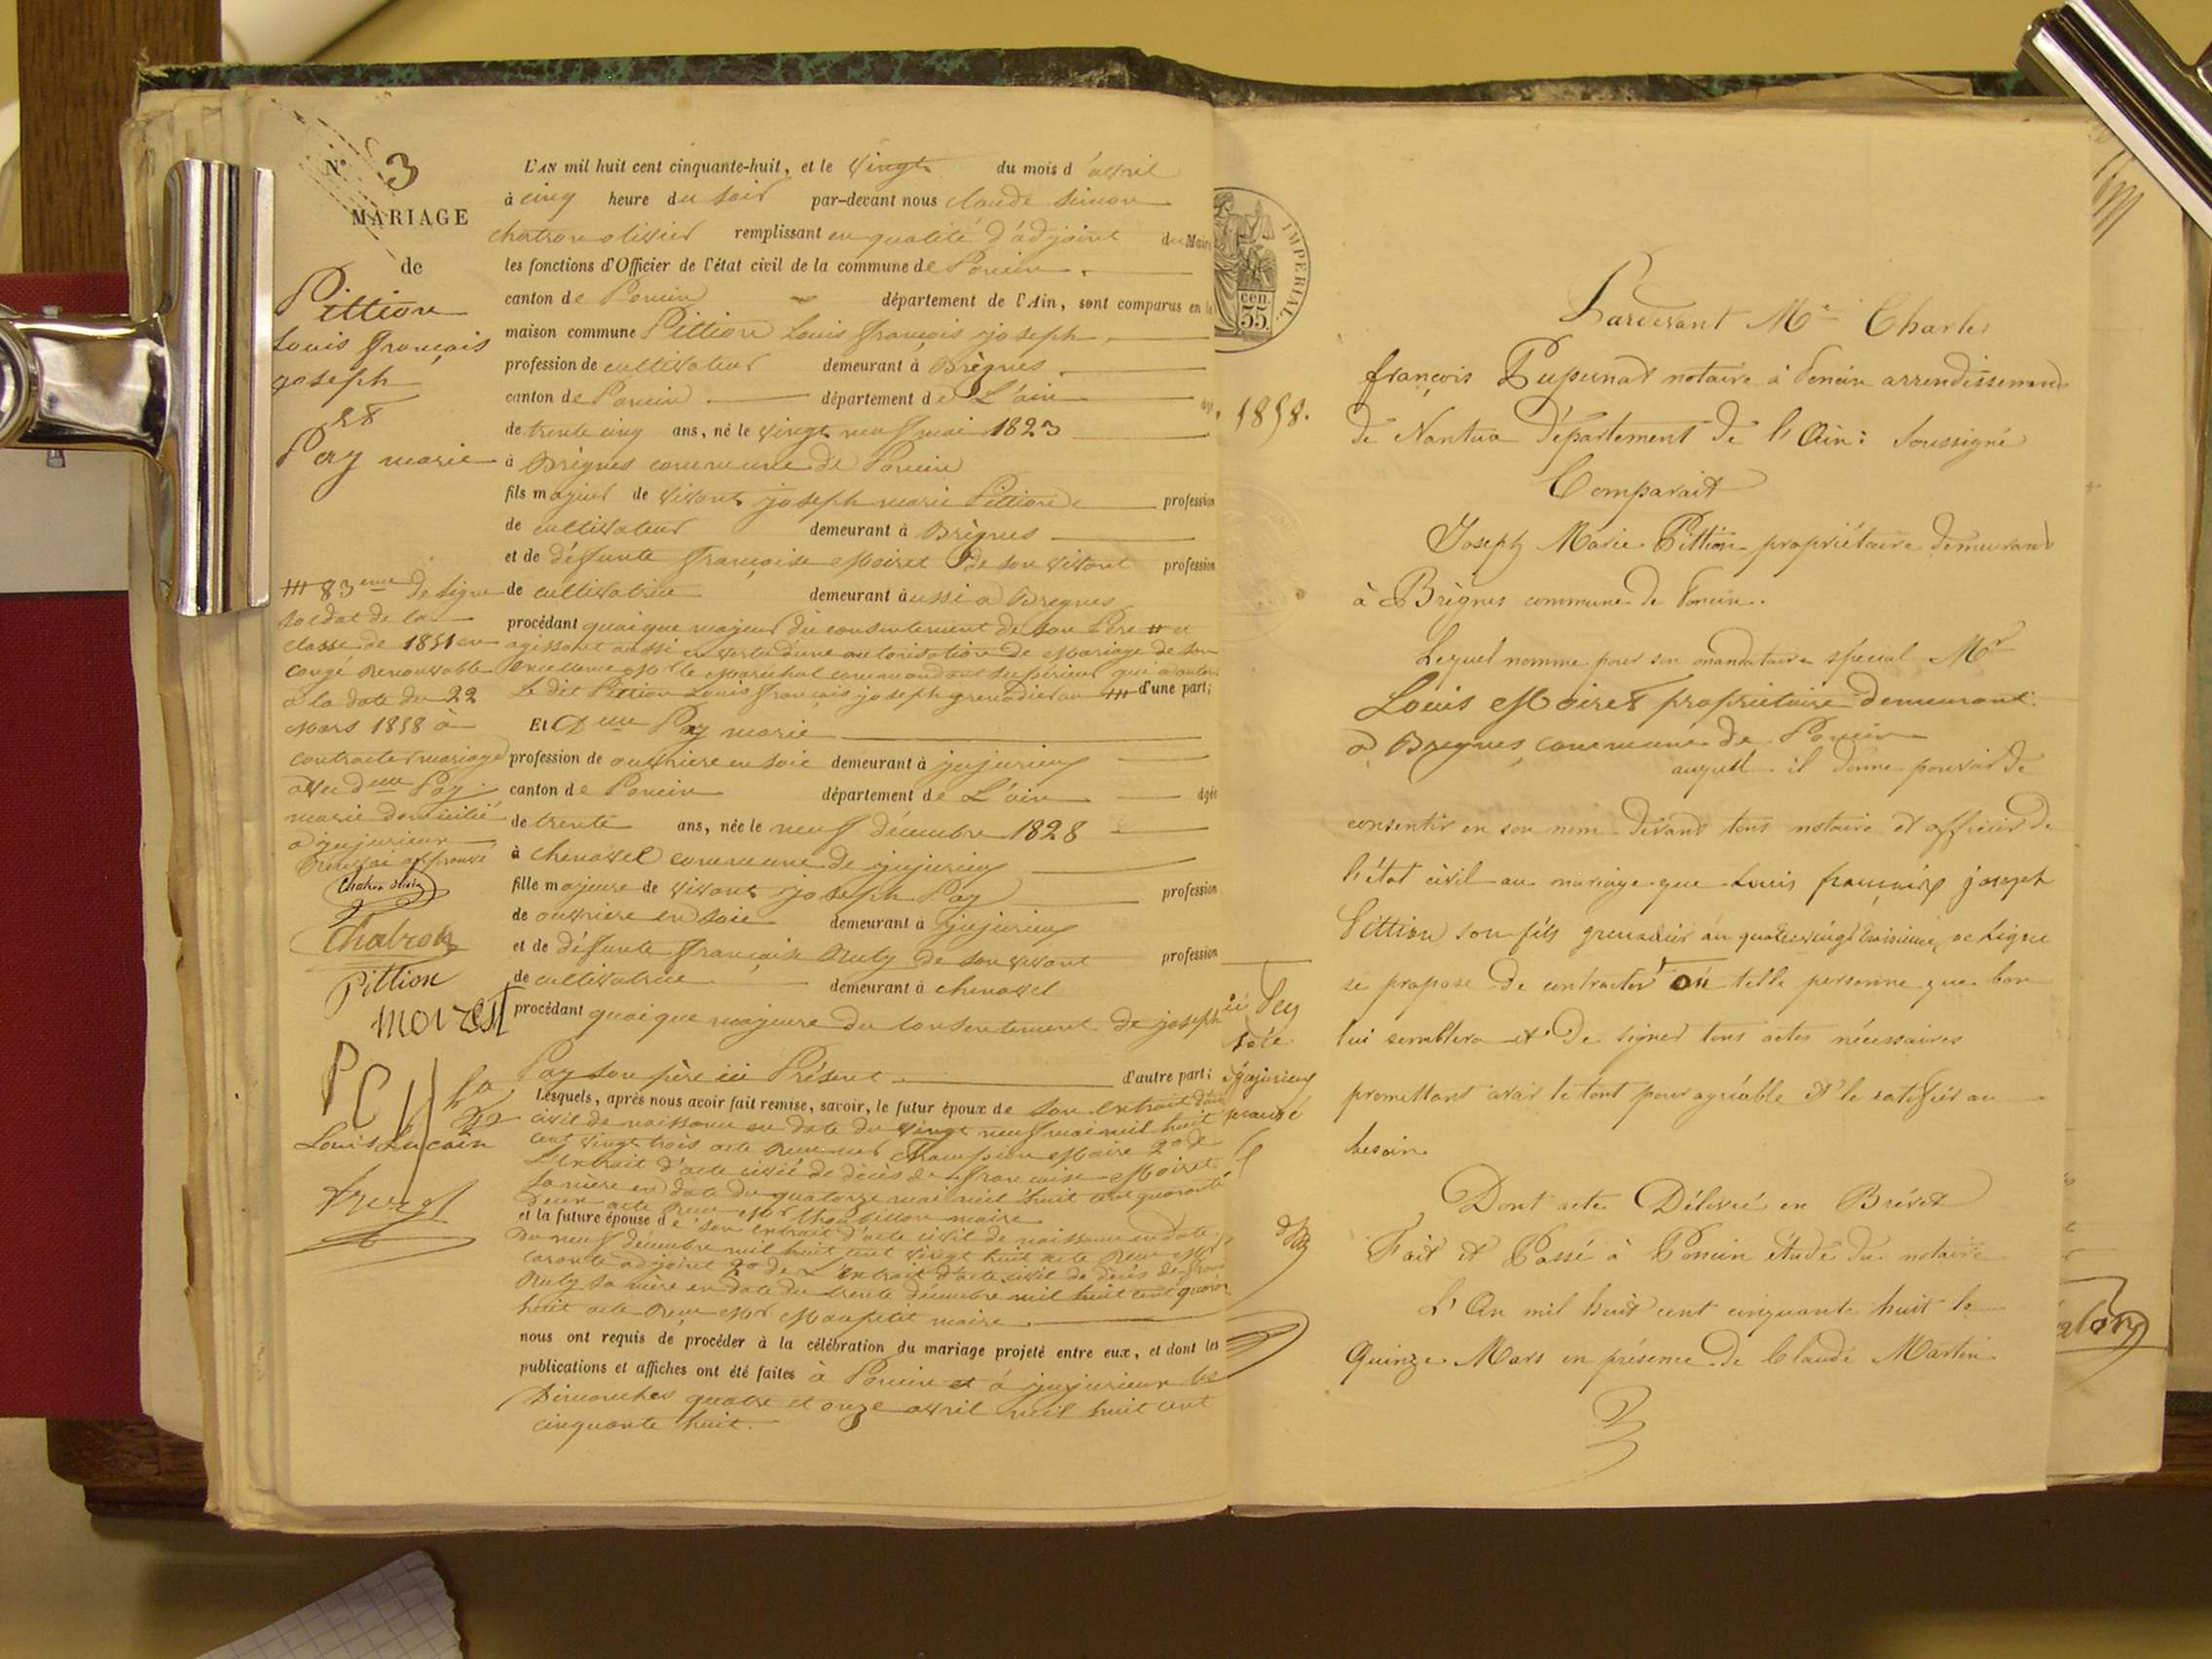 N° 3
MARIAGE
de
Pittion
Louis françois
joseph
et
Pay marie
L'AN mil huit cent cinquante-huit, et le vingt du mois d'avril
à cinq heure du soir par-devant nous claude simon
chatron olivier remplissant en qualité d'adjoint du Maire
les fonctions d'Officier de l'état civil de la commune de Poncin
canton de Poncin département de l'Ain, sont comparus en la
maison commune Pittion Louis françois joseph
profession de cultivateur demeurant à Brègnes
canton de Poncin département de L'ain
de trente cinq ans, né le vingt neuf mai 1823
à Brègnes commune de Poncin
fils majeur de vivant joseph marie Pittion profession
de cultivateur demeurant à Brègnes
et de défunte françoise Moiret de son vivant profession
de cultivatrice demeurant aussi a Bregnes
procédant quoique majeur du consentement de son Père et
agissant aussi en vertu d'une autorisation de Mariage de son
excellence Mr le Maréchal commandant Supérieur qui a autori
Le dit Pittion Louis françois joseph grenadier au d'une part;
83eme de ligne
soldat de la
classe de 1851 en
congé renouvable
à la date du 22
Mars 1858 à
contracter mariage
avec delle Pay
marie domicilié
a jujurieux
Renvoi approuvé
Chatron olivier
Chatron
Pittion
moiret
PEY
Louis Lucain
Et Delle Pay marie
profession de ouvriere en soie demeurant à jujurieux
canton de Poncin département de L'ain âgée
de trente ans, née le neuf décembre 1828
à chenavel commune de jujurieux
fille majeure de vivant joseph Pay profession
de ouvriere en soie demeurant à jujurieux
et de défunte françoise Ruty de son vivant profession
de cultivatrice demeurant à chenavel
procédant quoique majeure du consentement de joseph
Pay son père ici Présent d'autre part;
Lesquels, après nous avoir fait remise, savoir, le futur époux de son extrait d'acte
civil de naissance en date du vingt neuf mai mil huit
cent vingt trois acte Reçu Mr Maire 2° de
L'extrait d'acte civil de décès de françoise Moiret
sa mère en date du quatorze mai mil huit cent quarante
deux acte Reçu Mr maire
et la future épouse de son extrait d'acte civil de naissance en date
Du neuf décembre mil huit cent vingt huit acte Reçu Mr
adjoint 2° de L'extrait d'acte civil de décès de
Ruty sa mère en date du trente décembre mil huit cent
huit acte Reçu Mr Maupetit maire
nous ont requis de procéder à la célébration du mariage projeté entre eux, et dont les
publications et affiches ont été faites à Poncin et à jujurieux les
Dimanches quatre et onze avril mil huit cent
cinquante huit.
IMPERIAL
cen.
35
1858.
Pardevant Me Charles
françois Pupunat notaire à Poncin arrondissement
de Nantua Département de l'Ain: Soussigné
Comparait
Joseph Marie Pittion propriétaire demeurant
à Brègnes commune de Poncin.
Lequel nomme pour son mandataire spécial Mr
Louis Moiret propriétaire demeurant
à Bregnes, commune de Poncin
auquel il donne pouvoir de
consentir en son nom devant tous notaire et officier de
l'état civil au mariage que Louis françois joseph
Pittion son fils grenadier au quatrevingt troisieme de Ligne
se propose de contracter où telle personne que bon
lui semblera et de signer tous actes nécessaires
promettant avoir le tout pour agréable et le ratifier au
besoin
Dont acte Délivré en Brévet
Fait et Passé à Poncin étude du notaire
L'An mil huit cent cinquante huit le
Quinze Mars en présence de Claude Martin